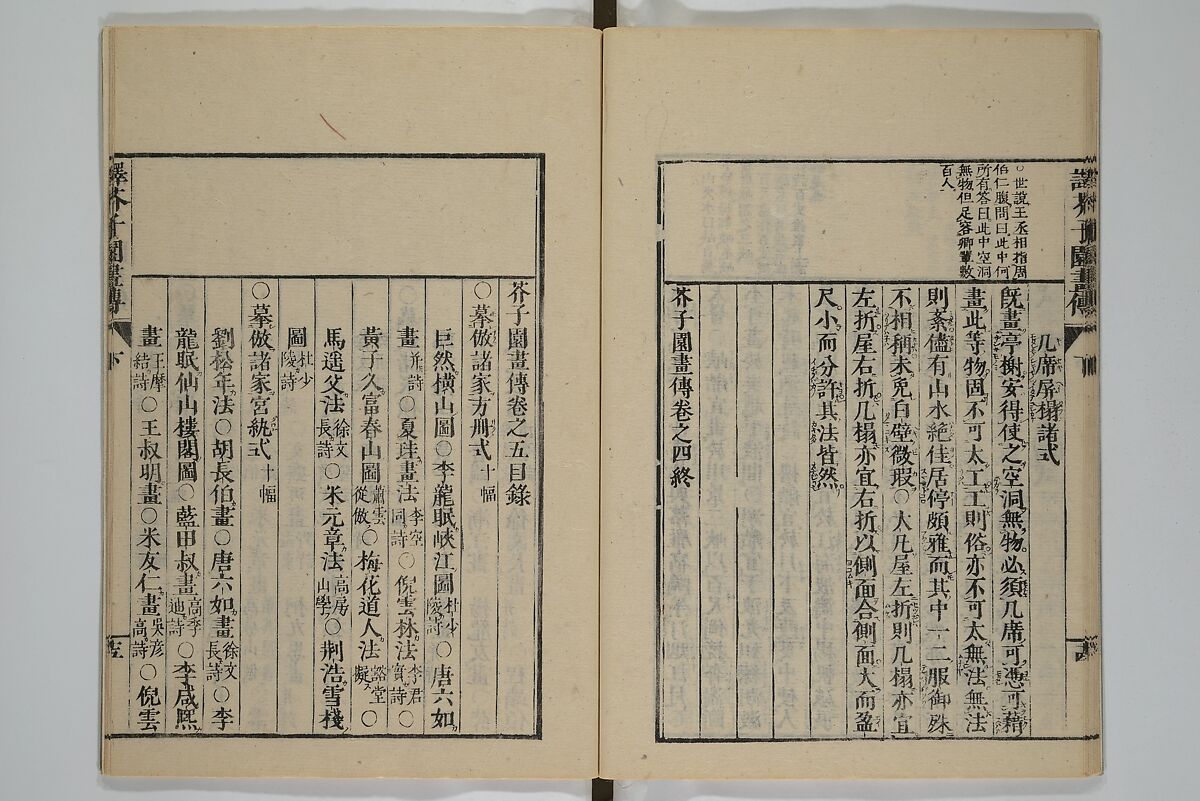 譯芥子園畫傳
下
十四
○世說王丞相指周
伯仁腹問曰此中何
所有答曰此中空洞
無物但足容卿輩數
百人
几席屏榻諸式
旣畫亭榭安得使之空洞無物必須几席可憑可藉
畫此等物固不可太工工則俗亦不可太無法無法
則紊儘有山水絕佳居停頗雅而其中一二服御殊
不相稱未免白壁微瑕○大凡屋左折則几榻亦宜
左折屋右折几榻亦宜右折以側面合側面大而盈
尺小而分許其法皆然
芥子園畫傳卷之四終
芥子園畫傳卷之五目錄
○摹倣諸家方冊式十幅
巨然橫山圖○李龍眠峽江圖杜少陵詩○唐六如
畫并詩○夏珪畫法李空同詩○倪雲林法李君實詩○
黃子久富春山圖蕭雲從倣○梅花道人法豁堂擬○
馬遥父法徐文長詩○米元章法高房山學○荆浩雪棧
圖杜少陵詩
○摹倣諸家宮紈式十幅
劉松年法○胡長伯畫○唐六如畫徐文長詩○李
龍眠仙山樓閣圖○藍田叔畫高季迪詩○李咸熙
畫王摩詰詩○王叔明畫○米友仁畫吳彥高詩○倪雲
譯芥子園畫傳
下